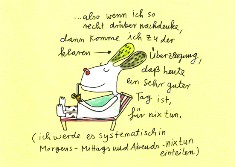 ...also wenn ich so
recht drüber nachdenke,
dann komme ich zu der
klaren → Überzeugung,
daß heute
ein sehr guter
Tag ist,
für nix tun.
(ich werde es systematisch in
Morgens- Mittags und Abends-nixtun
einteilen)